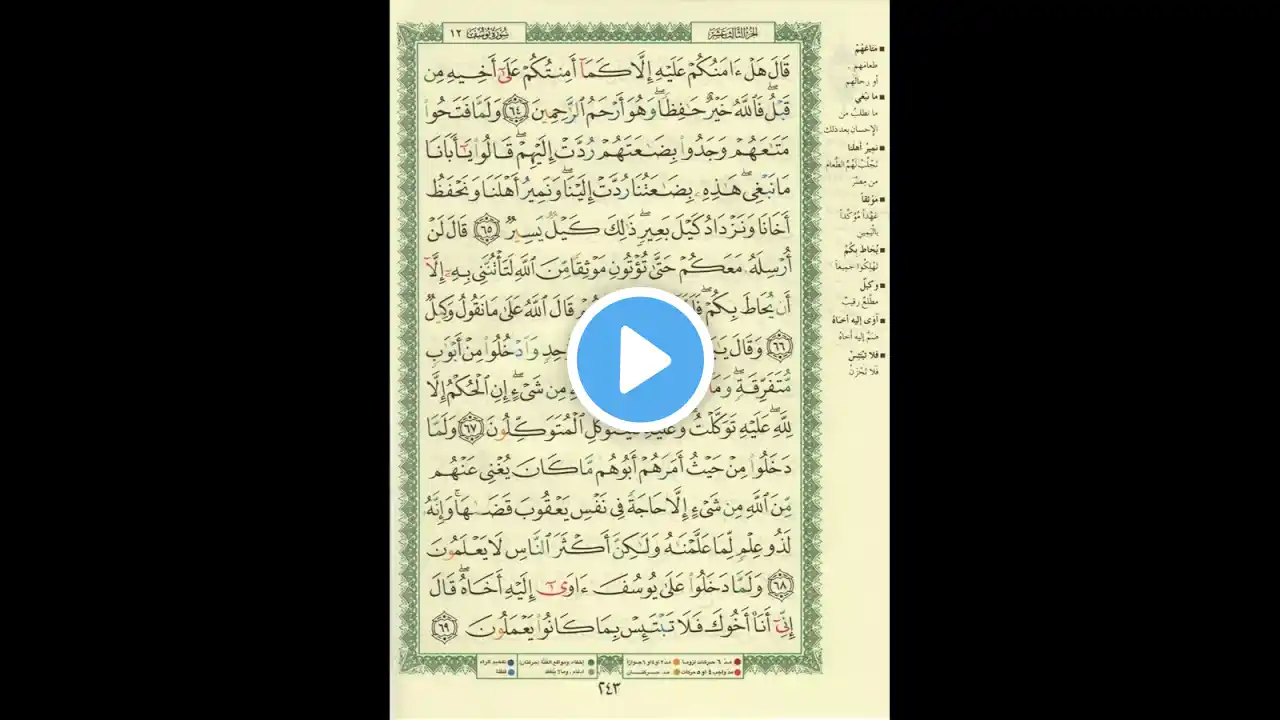 سُورَةُ يُوسُفَ ١٢
الجُزءُ الثَّالِثَ عَشَرَ
قَالَ هَلْ ءَامَنُكُمْ عَلَيْهِ إِلَّا كَمَآ أَمِنتُكُمْ عَلَىٰٓ أَخِيهِ مِن
قَبْلُ ۖ فَٱللَّهُ خَيْرٌ حَٰفِظًا ۖ وَهُوَ أَرْحَمُ ٱلرَّٰحِمِينَ ٦٤ وَلَمَّا فَتَحُوا۟
مَتَٰعَهُمْ وَجَدُوا۟ بِضَٰعَتَهُمْ رُدَّتْ إِلَيْهِمْ ۖ قَالُوا۟ يَٰٓأَبَانَا
مَا نَبْغِى ۖ هَٰذِهِۦ بِضَٰعَتُنَا رُدَّتْ إِلَيْنَا ۖ وَنَمِيرُ أَهْلَنَا وَنَحْفَظُ
أَخَانَا وَنَزْدَادُ كَيْلَ بَعِيرٍ ۖ ذَٰلِكَ كَيْلٌ يَسِيرٌ ٦٥ قَالَ لَنْ
أُرْسِلَهُۥ مَعَكُمْ حَتَّىٰ تُؤْتُونِ مَوْثِقًا مِّنَ ٱللَّهِ لَتَأْتُنَّنِى بِهِۦٓ إِلَّآ
أَن يُحَاطَ بِكُمْ ۖ قَالَ ٱللَّهُ عَلَىٰ مَا نَقُولُ وَكِيلٌ
٦٦ وَقَالَ وَٱدْخُلُوا۟ مِنْ أَبْوَٰبٍ
مُّتَفَرِّقَةٍ ۖ مِن شَىْءٍ ۖ إِنِ ٱلْحُكْمُ إِلَّا
لِلَّهِ ۖ عَلَيْهِ تَوَكَّلْتُ ۖ وَعَلَيْهِ فَلْيَتَوَكَّلِ ٱلْمُتَوَكِّلُونَ ٦٧ وَلَمَّا
دَخَلُوا۟ مِنْ حَيْثُ أَمَرَهُمْ أَبُوهُم مَّا كَانَ يُغْنِى عَنْهُم
مِّنَ ٱللَّهِ مِن شَىْءٍ إِلَّا حَاجَةً فِى نَفْسِ يَعْقُوبَ قَضَىٰهَا ۚ وَإِنَّهُۥ
لَذُو عِلْمٍ لِّمَا عَلَّمْنَٰهُ وَلَٰكِنَّ أَكْثَرَ ٱلنَّاسِ لَا يَعْلَمُونَ
٦٨ وَلَمَّا دَخَلُوا۟ عَلَىٰ يُوسُفَ ءَاوَىٰٓ إِلَيْهِ أَخَاهُ ۖ قَالَ
إِنِّىٓ أَنَا۠ أَخُوكَ فَلَا تَبْتَئِسْ بِمَا كَانُوا۟ يَعْمَلُونَ ٦٩
مَتَاعَهُمْ
طعامهم
أو رحالهم
ما نبغي
ما نطلبُ من
الإحسان بعد ذلك
نميرُ أهلنا
نجلُبُ لهُمُ الطَّعامَ
من مِصْرَ
مَوْثِقاً
عَهْداً مُؤكّداً
باليَمين
يُحَاط بكُمْ
تهْلِكُوا جميعاً
وكيلٌ
مطّلعٌ رقيبٌ
آوى إليه أخاهُ
ضمَّ إليه أخاهُ
فلا تبْتَئِسْ
فَلا تَحْزَنْ
مدّ ٦ حركات لزوماً
مدّ ٢ أو ٤ أو ٦ جوازاً
إخفاء، ومواقع الغُنَّة (حركتان)
تفخيم الراء
مدّ واجب ٤ أو ٥ حركات
مدّ حركتان
ادغام، وما لا يُلفظ
قلقلة
٢٤٣